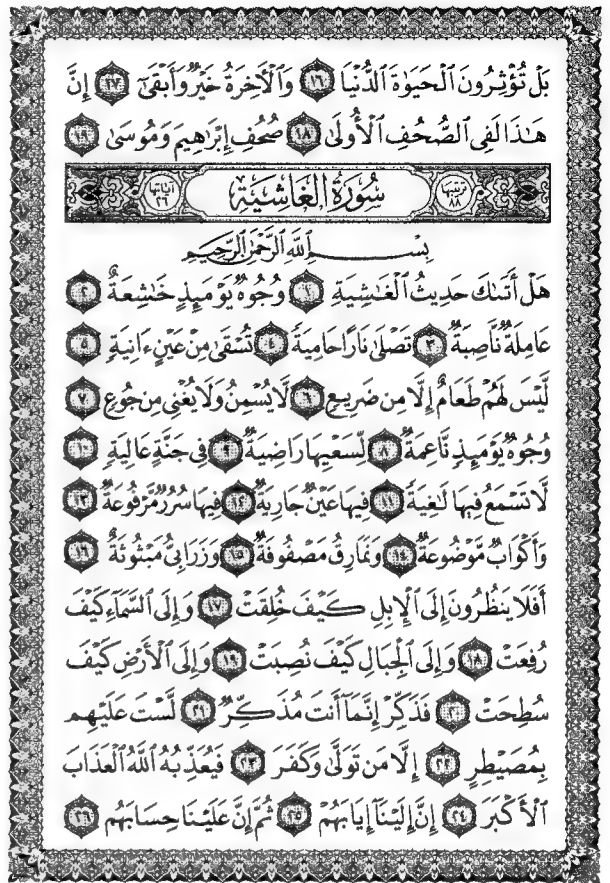 بَلْ تُؤْثِرُونَ ٱلْحَيَوٰةَ ٱلدُّنْيَا ١٦ وَٱلْءَاخِرَةُ خَيْرٌ وَأَبْقَىٰٓ ١٧ إِنَّ
هَـٰذَا لَفِى ٱلصُّحُفِ ٱلْأُولَىٰ ١٨ صُحُفِ إِبْرَٰهِيمَ وَمُوسَىٰ ١٩
ترتيبها ٨٨ سُورَةُ الغَاشِيَةِ آياتها ٢٦
بِسْمِ ٱللَّهِ ٱلرَّحْمَـٰنِ ٱلرَّحِيمِ
هَلْ أَتَىٰكَ حَدِيثُ ٱلْغَـٰشِيَةِ ١ وُجُوهٌ يَوْمَئِذٍ خَـٰشِعَةٌ ٢
عَامِلَةٌ نَّاصِبَةٌ ٣ تَصْلَىٰ نَارًا حَامِيَةً ٤ تُسْقَىٰ مِنْ عَيْنٍ ءَانِيَةٍ ٥
لَّيْسَ لَهُمْ طَعَامٌ إِلَّا مِن ضَرِيعٍ ٦ لَّا يُسْمِنُ وَلَا يُغْنِى مِن جُوعٍ ٧
وُجُوهٌ يَوْمَئِذٍ نَّاعِمَةٌ ٨ لِّسَعْيِهَا رَاضِيَةٌ ٩ فِى جَنَّةٍ عَالِيَةٍ ١٠
لَّا تَسْمَعُ فِيهَا لَـٰغِيَةً ١١ فِيهَا عَيْنٌ جَارِيَةٌ ١٢ فِيهَا سُرُرٌ مَّرْفُوعَةٌ ١٣
وَأَكْوَابٌ مَّوْضُوعَةٌ ١٤ وَنَمَارِقُ مَصْفُوفَةٌ ١٥ وَزَرَابِىُّ مَبْثُوثَةٌ ١٦
أَفَلَا يَنظُرُونَ إِلَى ٱلْإِبِلِ كَيْفَ خُلِقَتْ ١٧ وَإِلَى ٱلسَّمَآءِ كَيْفَ
رُفِعَتْ ١٨ وَإِلَى ٱلْجِبَالِ كَيْفَ نُصِبَتْ ١٩ وَإِلَى ٱلْأَرْضِ كَيْفَ
سُطِحَتْ ٢٠ فَذَكِّرْ إِنَّمَآ أَنتَ مُذَكِّرٌ ٢١ لَّسْتَ عَلَيْهِم
بِمُصَيْطِرٍ ٢٢ إِلَّا مَن تَوَلَّىٰ وَكَفَرَ ٢٣ فَيُعَذِّبُهُ ٱللَّهُ ٱلْعَذَابَ
ٱلْأَكْبَرَ ٢٤ إِنَّ إِلَيْنَآ إِيَابَهُمْ ٢٥ ثُمَّ إِنَّ عَلَيْنَا حِسَابَهُم ٢٦